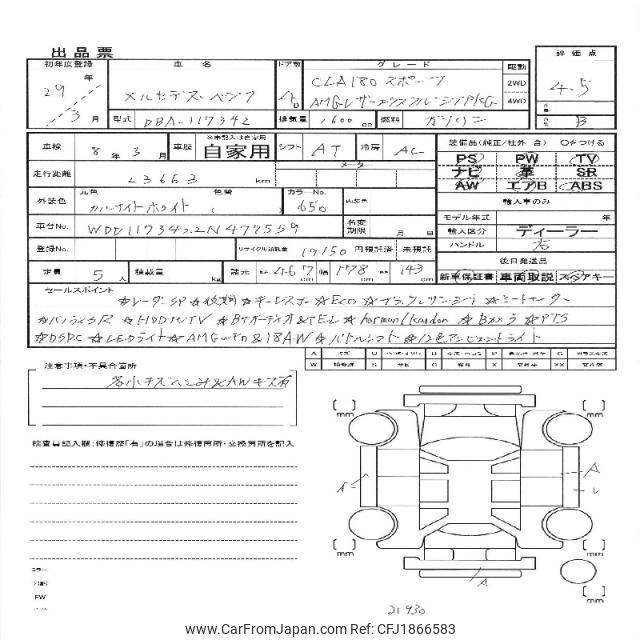 出品票
初年度登録 車名 ドア数 グレード 駆動 評価点
29年 メルセデス・ベンツ 4D CLA180 スポーツ 2WD 4.5
3月 AMGレザーエクスクルーシブPKG 4WD
型式 DBA-117342 排気量 1600 cc 燃料 ガソリン B
車検 8年3月 車歴 ※未記入は自家用 自家用 シフト AT 冷房 AC
装備品(純正/社外 含) ○をつける
PS PW TV
走行距離 23663 km メーター
ナビ 革 SR
AW エアB ABS
外装色 元色 カルサイトホワイト 色替 カラーNo. 650 内装色
輸入車のみ
モデル年式 年
車台No. WDD1173422N477559 名変期限 月 日
輸入区分 ディーラー
登録No. リサイクル預託金 19150 円 預託済 未預託
ハンドル 右
後日発送品
定員 5人 積載量 kg 諸元 467 幅 178 143 cm
新車保証書 車両取説 スペアキー
セールスポイント
☆レーダーSP☆後期☆キーレスゴー☆Eco☆ブラックレザーシート☆シートヒーター
☆パノラミックSR ☆HDDナビTV ☆BTオーディオ&TEL☆harman/kardon ☆Bカメラ☆PTS
☆DSRC ☆LEDライト☆AMGエアロ&18AW☆パドルシフト☆12色アンビエントライト
注意事項・不具合箇所
各小キズヘこみ&AWキズ有
検査員記入欄:修復歴「有」の場合は修復箇所・交換箇所を記入
[ ] mm [ ] mm
A A
U
[ ] mm [ ] mm
A
21930
www.CarFromJapan.com - CFJ1866583